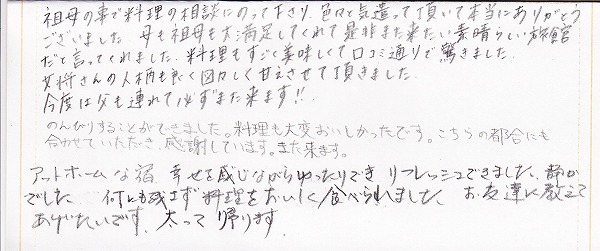 祖母の事で料理の相談にのって下さり、色々と気遣って頂いて本当にありがとう
ございました。母も祖母も大満足してくれて是非また来たい素晴らしい旅館
だと言ってくれました。料理もすごく美味しくて口コミ通りで驚きました。
女将さんの人柄も良く図々しく甘えさせて頂きました。
今度は父も連れて必ずまた来ます!!
のんびりすることができました。料理も大変おいしかったです。こちらの都合にも
合わせていただき、感謝しています。また来ます。
アットホームな宿 幸せを感じながらゆったりでき リフレッシュできました、静か
でした 何も残さず料理をおいしく食べられました、お友達に教えて
あげたいです、太って帰ります